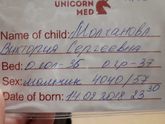 UNICORN
MED
Name of child: Молчанова
Виктория Сергеевна
Bed: 0 гол-36 0 гр-37
Sex: мальчик 4040/57
Date of born: 14.09.2018 23 30